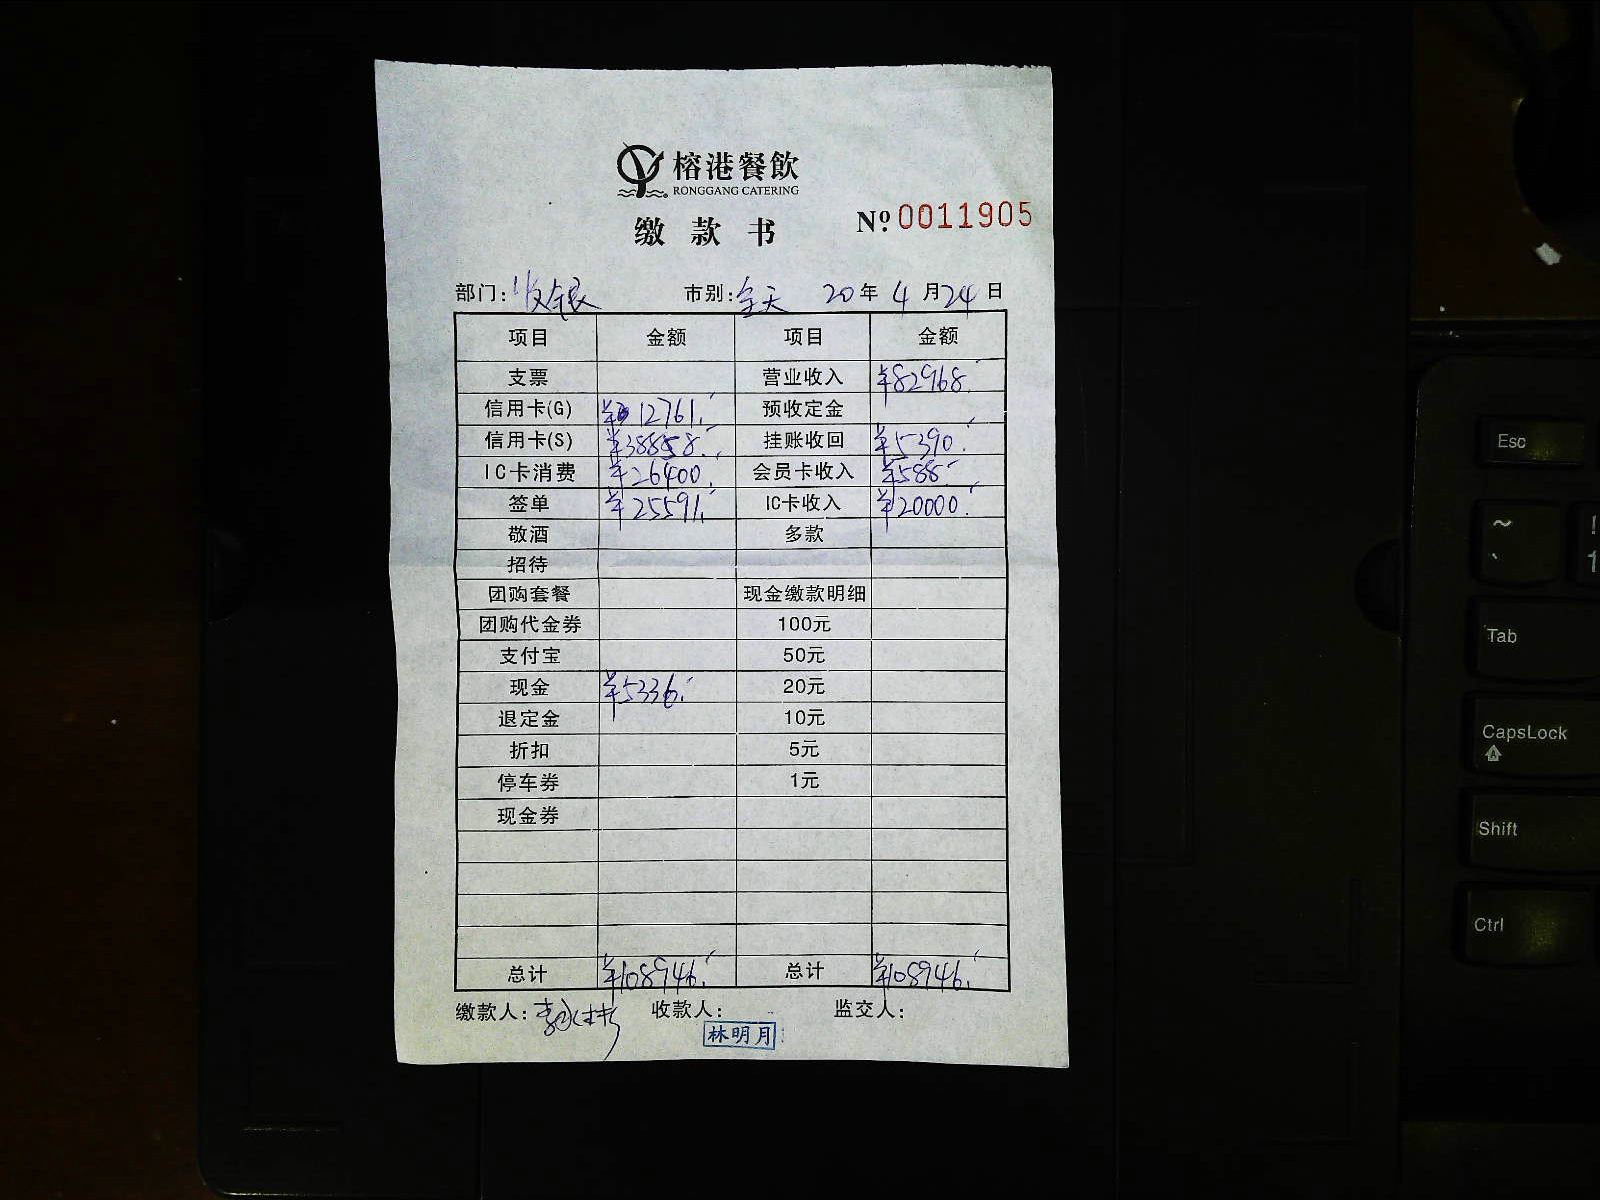 榕港餐飲
RONGGANG CATERING
缴款书 №0011905
部门: 收银 市别: 全天 20年 4月24日
项目 金额 项目 金额
支票 营业收入 ¥82968.
信用卡(G) ¥12761. 预收定金
信用卡(S) ¥38858. 挂账收回 ¥5390.
IC卡消费 ¥26400. 会员卡收入 ¥588.
签单 ¥25591. IC卡收入 ¥20000.
敬酒 多款
招待
团购套餐 现金缴款明细
团购代金券 100元
支付宝 50元
现金 ¥5336. 20元
退定金 10元
折扣 5元
停车券 1元
现金券
总计 ¥108946. 总计 ¥108946.
缴款人: 收款人: 监交人:
林明月
Esc
~
`
!
1
Tab
CapsLock
A
Shift
Ctrl